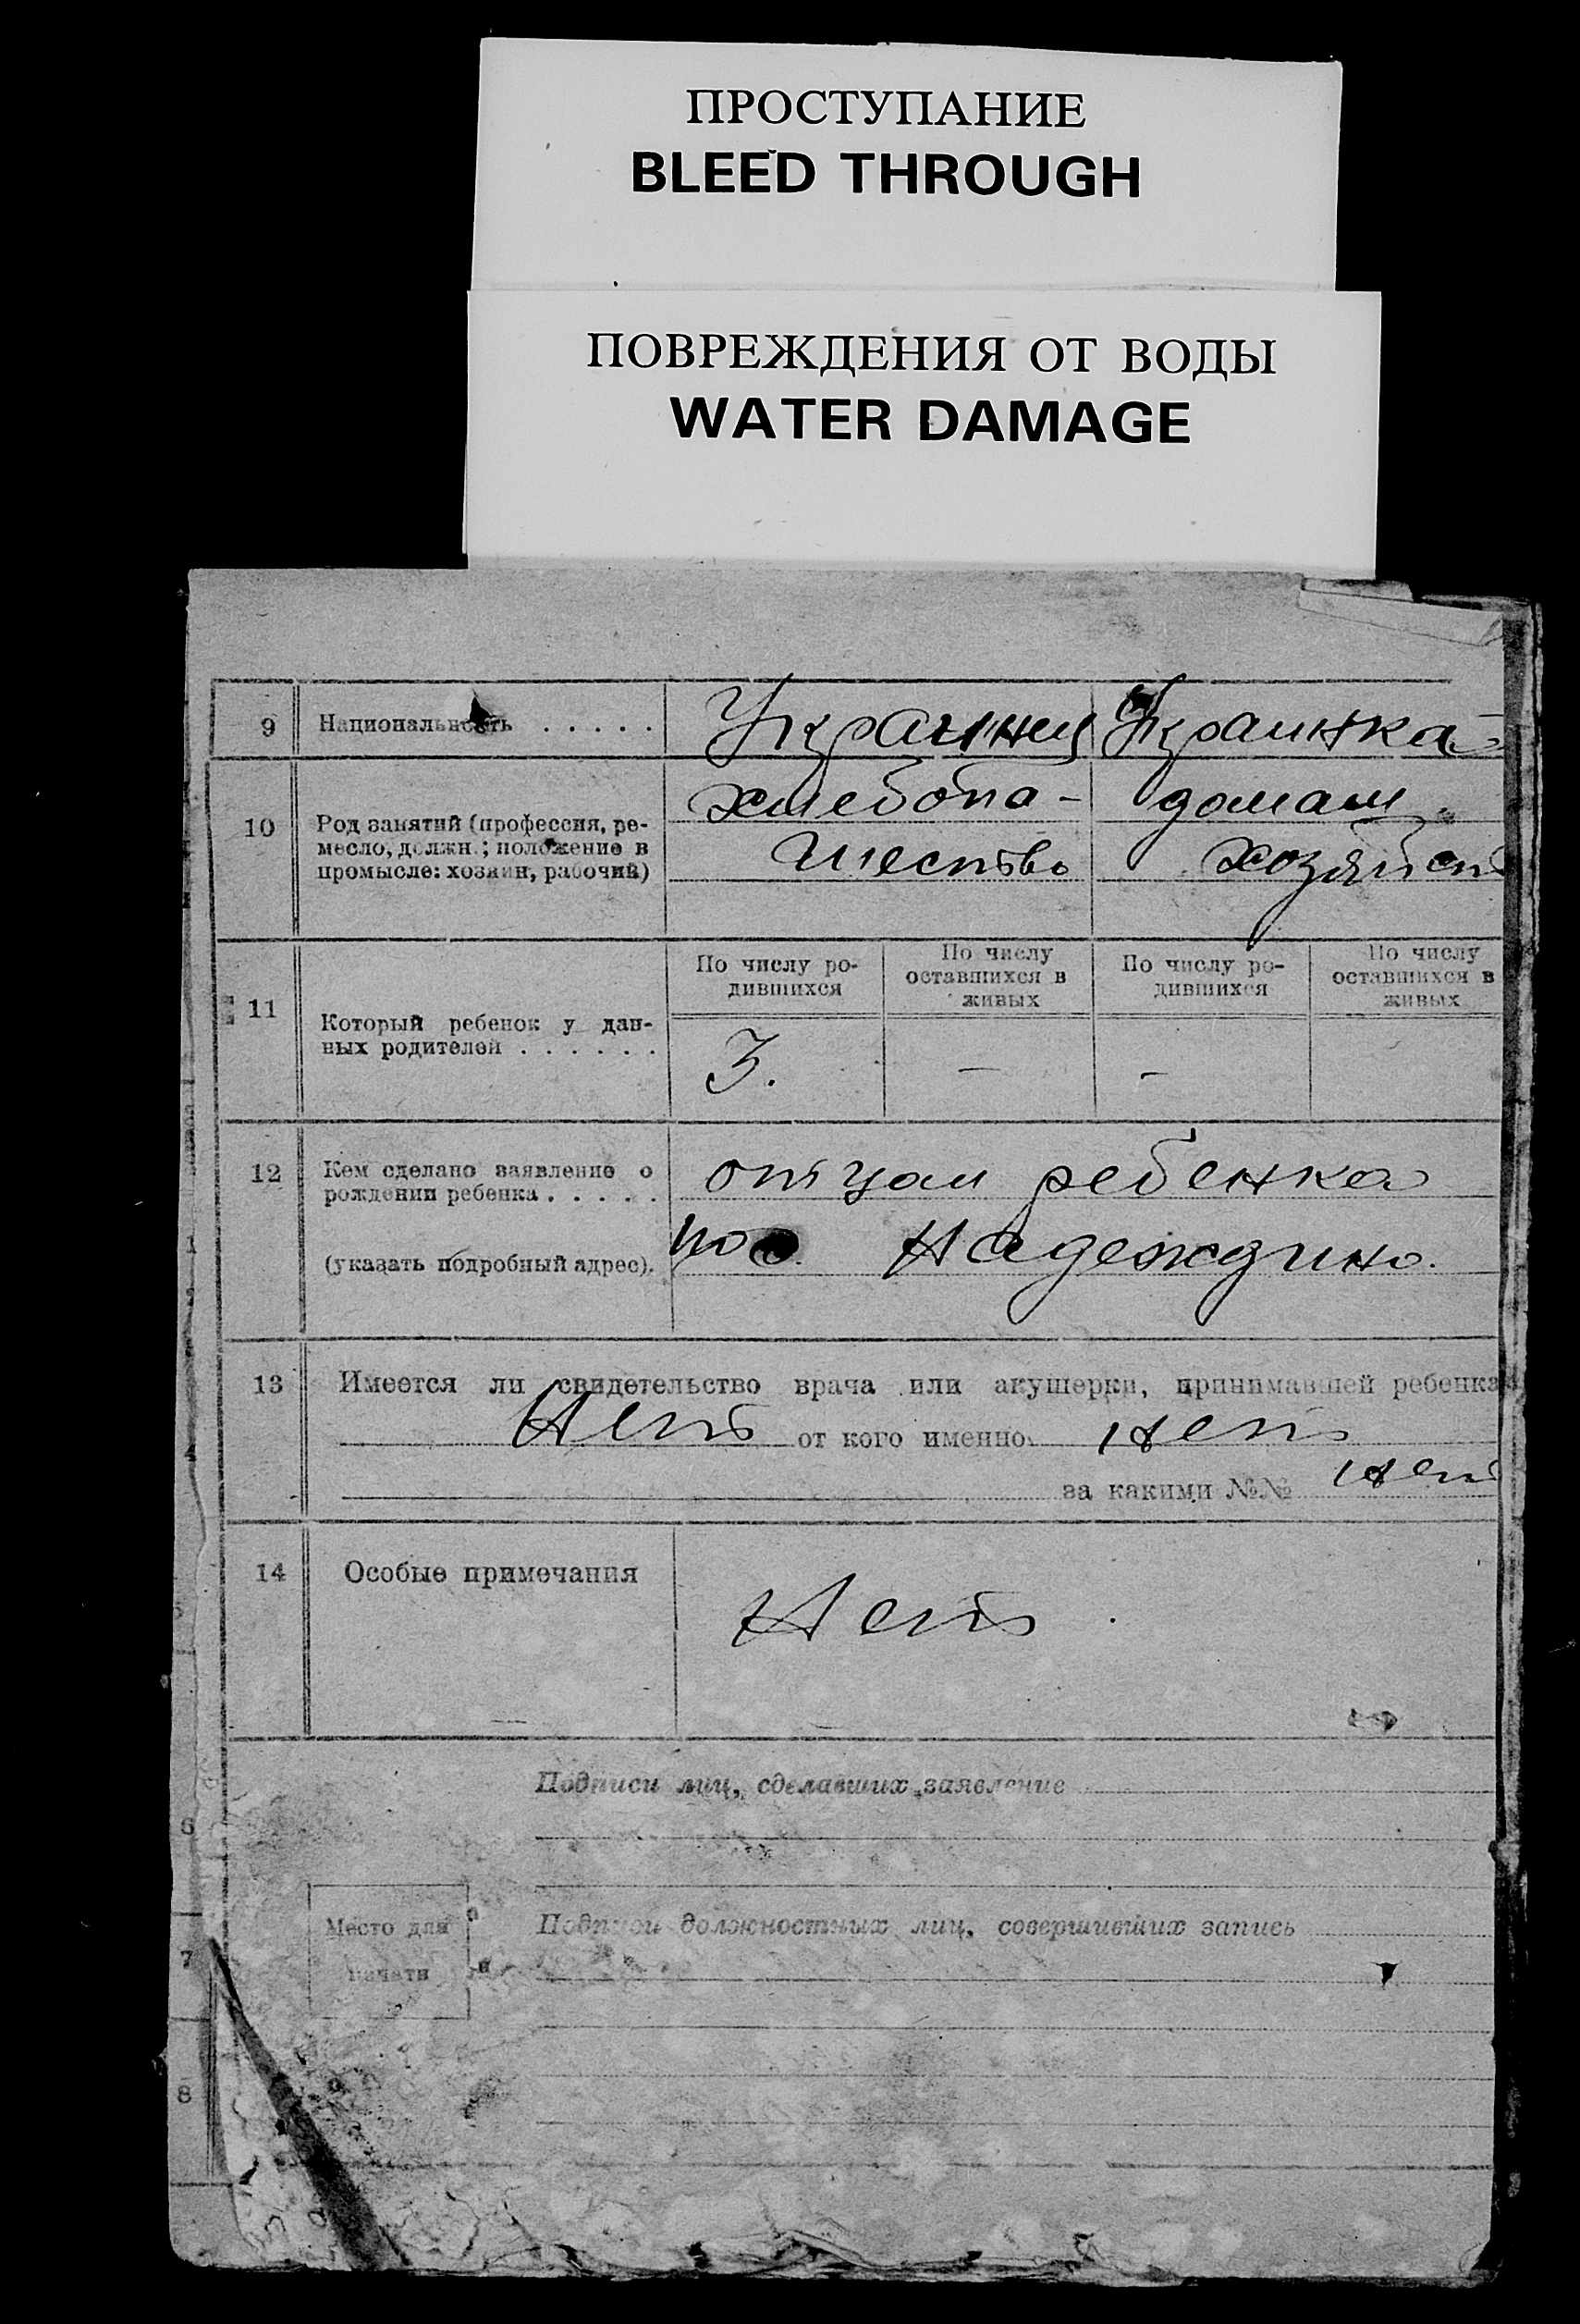 ПРОСТУПАНИЕ
BLEED THROUGH
ПОВРЕЖДЕНИЯ ОТ ВОДЫ
WATER DAMAGE
9 Национальность . . . . . Украинец Украинка
10 Род занятий (профессия, ре-
месло, должн.; положение в
промысле: хозяин, рабочий)
хлебопа-
шество
домаш.
хозяйст
11 Который ребенок у дан-
ных родителей . . . . . .
По числу ро-
дившихся
По числу
оставшихся в
живых
По числу ро-
дившихся
По числу
оставшихся в
живых
3. – –
12 Кем сделано заявление о
рождении ребенка . . . . .
(указать подробный адрес).
отцом ребенка
Надеждино.
13 Имеется ли свидетельство врача или акушерки, принимавшей ребенка
Нет от кого именно нет
за какими №№ нет
14 Особые примечания Нет
Подписи лиц, сделавших заявление
Место для
печати
Подписи должностных лиц, совершивших запись
1
6
7
8